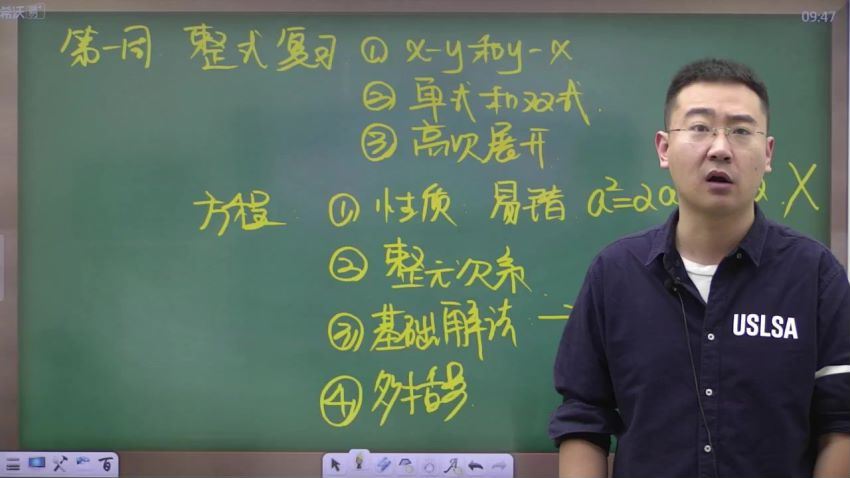 希沃易+
09:47
第一周 整式复习 ① x-y和y-x
② 单式和双式.
③ 高次展开
方程 ① 性质 易错 a²=2a X
② 整元次系
③ 基础解法 一
④ 多括号
USLSA